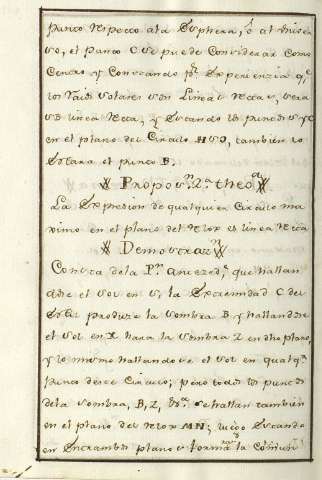 punto respecto ala Sphera, ô al universo
so, el punto C se puede Considerar como
Centro y Constando pr. Experienzia q.e
los raios solares son Lineas rectas, sera
linea recta, y estando los puntos
en el plano del Circulo HSO, tambien lo
Estara el punto B.
Propos.n 2.a theo.a
La Expresion de qualquier Circulo maximo
ximo en el plano del Relox es linea recta
Demostraz.n
Consta dela P.te anteced.te que hallan
dose el sol en S, la Extremidad C del
Estilo produze la sombra B, y hallandose
el sol en X hara la sombra Z en dho plano,
y lo mismo hallandose el sol en qualq.r
punto deste Circulo; pero todos los puntos
dela sombra, B, Z, &.a se hallan tambien
en el plano del relox MN; luego Estando
en Entrambos planos forma la Comun